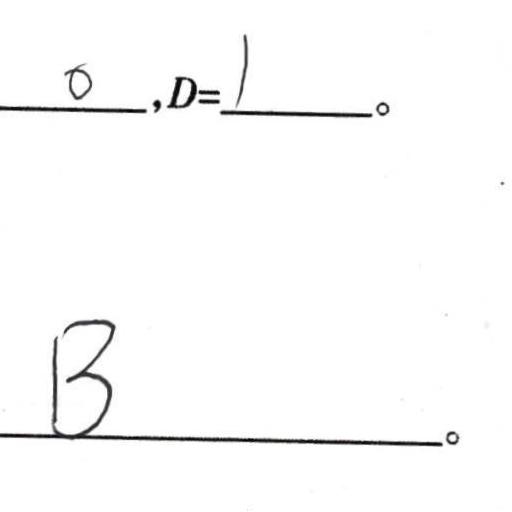 0 , D= 1 。
B 。